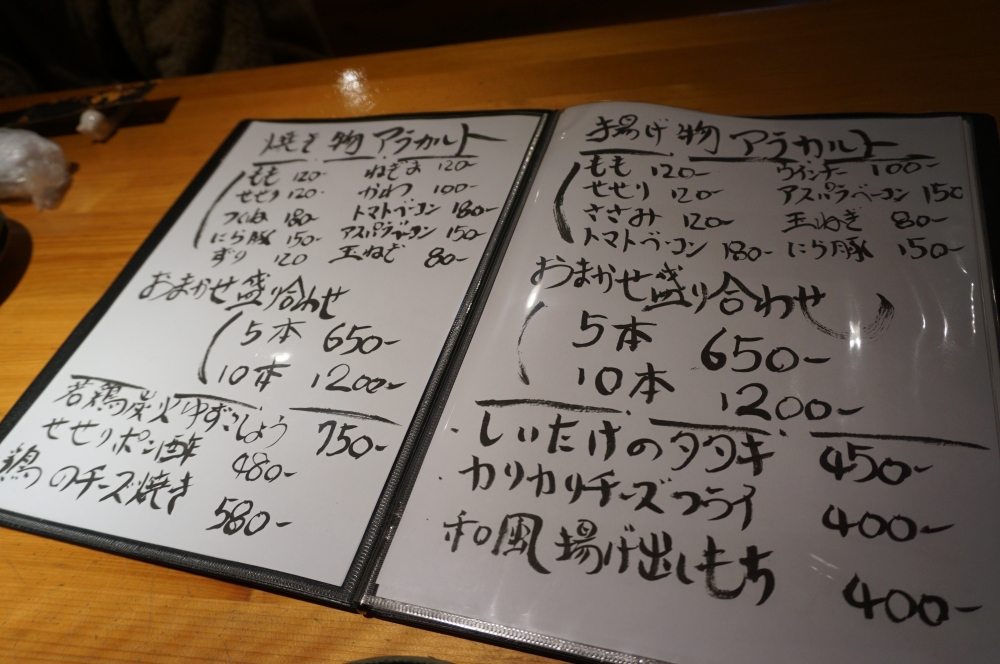 焼き物 アラカルト
もも 120- ねぎま 120-
せせり 120- かわ 100-
つくね 180- トマトベーコン 180-
にら豚 150- アスパラベーコン 150-
ずり 120 玉ねぎ 80-
おまかせ盛り合わせ
5本 650-
10本 1200-
若鶏炭火ゆずこしょう 750-
せせりポン酢 480-
鶏のチーズ焼き 580-
揚げ物 アラカルト
もも 120- ウインナー 100-
せせり 120- アスパラベーコン 150
ささみ 120- 玉ねぎ 80-
トマトベーコン 180- にら豚 150-
おまかせ盛り合わせ
5本 650-
10本 1200-
しいたけのタタキ 450-
カリカリチーズフライ 400-
和風揚げ出しもち 400-